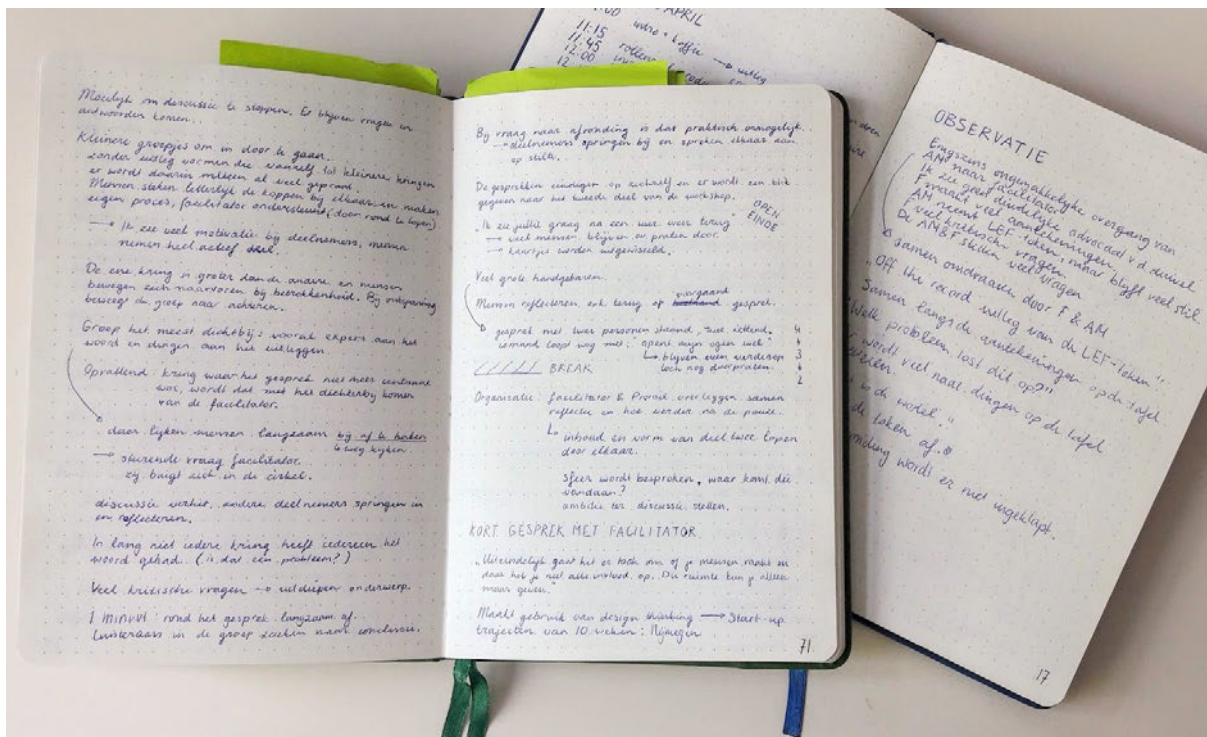 Moeilijk om discussie te stoppen. Er blijven vragen en
antwoorden komen..
Kleinere groepjes om in door te gaan.
zonder uitleg vormen die vanzelf tot kleinere kringen
er wordt daarin meteen al veel gepraat.
Mensen steken letterlijk de koppen bij elkaar en maken
eigen proces, facilitator ondersteunt (door rond te lopen)
→ Ik zie veel motivatie bij deelnemers, mensen
nemen heel actief deel.
De ene kring is groter dan de andere en mensen
bewegen zich naar voren bij betrokkenheid. Bij ontspanning
beweegt de groep naar achteren.
Groep het meest dichtbij: vooral expert aan het
woord en dingen aan het uitleggen
Opvallend: kring waar het gesprek niet meer centraal
was, wordt dat met het dichterbij komen
van de facilitator.
daar lijken mensen langzaam bij af te haken
te weg kijken
→ sturende vraag facilitator.
zij buigt zich in de cirkel.
discussie verhit, andere deelnemers springen in
en reflecteren.
In lang niet iedere kring heeft iedereen het
woord gehad. (is dat een probleem?)
Veel kritische vragen → uitdiepen onderwerp.
1 minuut: rond het gesprek langzaam af.
luisteraars in de groep zoeken naar conclusies.
Bij vraag naar afronding is dat praktisch onmogelijk.
→ deelnemers springen bij en spreken elkaar aan
op stilte.
De gesprekken eindigen op zichzelf en er wordt een blik
gegeven naar het tweede deel van de workshop.
OPEN
EINDE
"Ik zie jullie graag na een uur weer terug"
→ veel mensen blijven en praten door.
→ kaartjes worden uitgewisseld.
Veel grote handgebaren.
voorgaand
Mensen reflecteren ook terug op gesprek.
gesprek met twee personen staand, rest zittend. 4
iemand loopt weg met: "opent mijn ogen wel" 4
↳ blijven even verderop 3
toch nog doorpraten. 4
///// BREAK 2
Organisatie: facilitator & overleggen samen
reflectie en hoe verder na de pauze.
↳ inhoud en vorm van deel twee lopen
door elkaar.
sfeer wordt besproken, waar komt die
vandaan?
ambitie ter discussie stellen.
KORT GESPREK MET FACILITATOR
"Uiteindelijk gaat het er toch om of je mensen raakt en
daar heb je niet alle invloed op. Die ruimte kun je alleen
maar geven."
Maakt gebruik van design thinking → Start-up
trajecten van 10 weken: Nijmegen
71
APRIL
11:15 intro + koffie
11:45 → uitleg
12:00
OBSERVATIE
Enigszins ongemakkelijke overgang van
AM naar facilitator
Ik zie geen duidelijke advocaat v.d. duivel
F maakt veel aantekeningen
AM neemt LEF-token, maar blijft veel stil.
De veel kritische vragen
AM & F stellen veel vragen
Samen omdraaien door F & AM
"Off the record uitleg van de LEF-token"
Samen langs de aantekeningen op de tafel
"Welk probleem lost dit op?"
wordt veel naar dingen op de tafel
de token af.
wordt er niet ingeklapt.
17